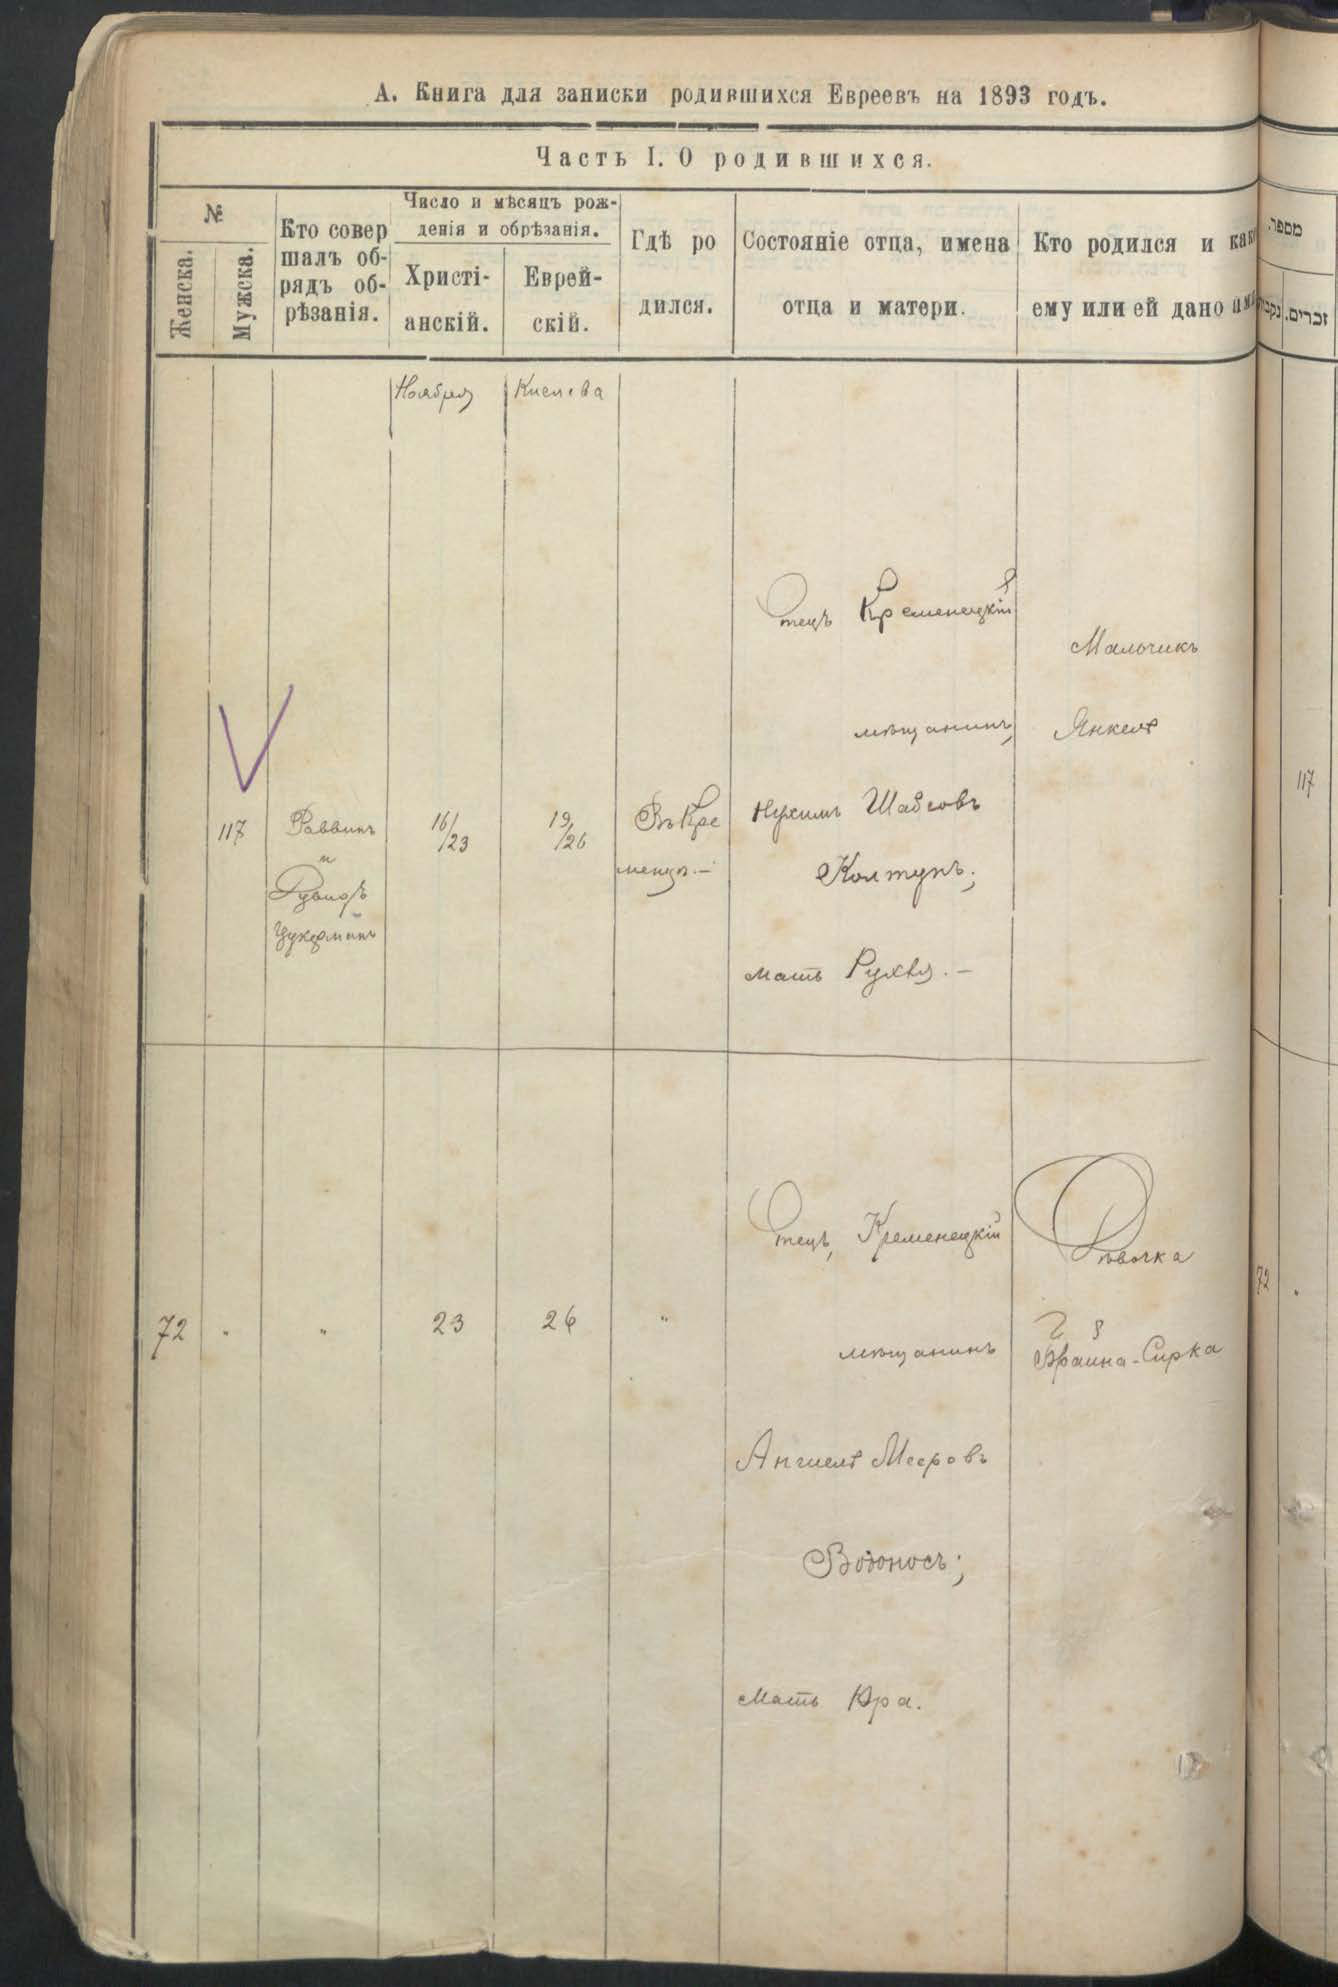 А. Книга для записки родившихся Евреевъ на 1893 годъ.
Часть I. О родившихся.
№
Женска.
Мужска.
Кто совер
шалъ об-
рядъ об-
рѣзанія.
Число и мѣсяцъ рож-
денія и обрѣзанія.
Христі-
анскій.
Еврей-
скій.
Гдѣ ро
дился.
Состояніе отца, имена
отца и матери.
Кто родился и како
ему или ей дано имя
מספר.
נקבות
זכרים.
Ноября
Кислева
117
Раввинъ
и
Цукерманъ
16/23
19/26
Въ Кре
менцѣ.—
Отецъ Кременецкій
мѣщанинъ,
Нухимъ Шабсовъ
Колтунъ;
мать Рухля.—
Мальчикъ
Янкель
117
72
"
"
23
26
"
Отецъ, Кременецкій
мѣщанинъ
Анчиель Мееровъ
Водоносъ;
мать
Дѣвочка
Фраина-Сирка
72
"